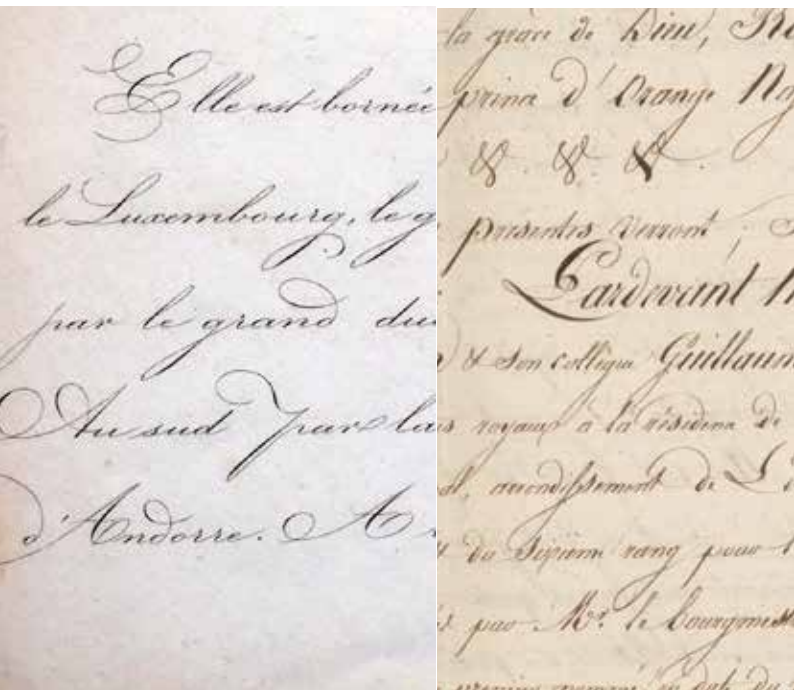 Elle est bornée
le Luxembourg, le g
par le grand du
Au sud par la
d'Andorre. A
la grâce de Dieu, Ro
prince d'Orange Na
&. &. &.
présentes verront ;
Pardevant
& son collègue Guillaum
royaux à la résidence de
arrondissement de L
du sixième rang pour
par Mr. le bourgmest